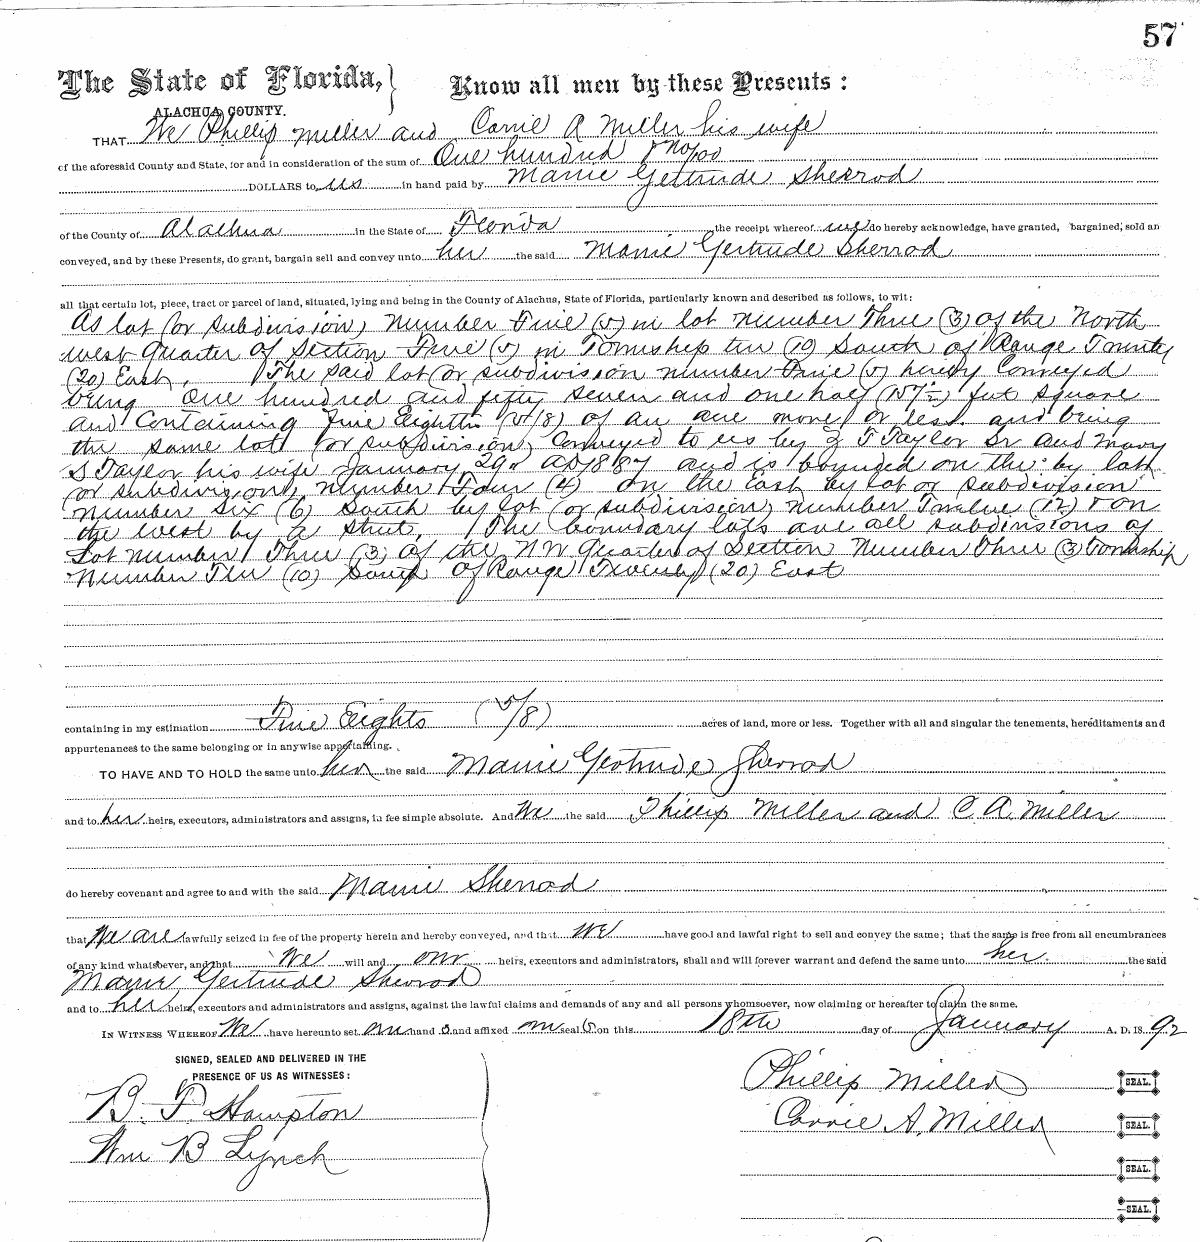 57
The State of Florida, Know all men by these Presents :
ALACHUA COUNTY.
THAT We Phillip Miller and Carrie A Miller his wife
of the aforesaid County and State, for and in consideration of the sum of One hundred & No/100
DOLLARS to us in hand paid by Mamie Gertrude Sherrod
of the County of Alachua in the State of Florida the receipt whereof we do hereby acknowledge, have granted, bargained, sold an
conveyed, and by these Presents, do grant, bargain sell and convey unto her the said Mamie Gertrude Sherrod
all that certain lot, piece, tract or parcel of land, situated, lying and being in the County of Alachua, State of Florida, particularly known and described as follows, to wit:
As lot (or subdivision) Number Five (5) in lot number Three (3) of the North
west Quarter of Section Five (5) in Township ten (10) South of Range Twenty
(20) East. The said lot (or subdivision number Five (5) hereby Conveyed
being One hundred and fifty seven and one half (157½) feet Square
and Containing Five Eighths (5/8) of an acre more or less. and being
the same lot (or subdivision) Conveyed to us by T Taylor Sr and Mary
S Taylor his wife January 29th AD 1887 and is bounded on the by lot
or subdivision) number Four (4) on the East by lot or subdivision
Number Six (6) South by lot (or subdivision) number Twelve (12) & on
the west by a street. The boundary lots are all subdivisions of
Lot number Three (3) of the N W Quarter of Section Number Three (3) Township
Number Ten (10) South of Range Twenty (20) East
containing in my estimation Five Eights (5/8) acres of land, more or less. Together with all and singular the tenements, hereditaments and
appurtenances to the same belonging or in anywise appertaining.
TO HAVE AND TO HOLD the same unto her the said Mamie Gertrude Sherrod
and to her heirs, executors, administrators and assigns, in fee simple absolute. And We the said Phillip Miller and C. A. Miller
do hereby covenant and agree to and with the said Mamie Sherrod
that We are lawfully seized in fee of the property herein and hereby conveyed, and that We have good and lawful right to sell and convey the same; that the same is free from all encumbrances
of any kind whatsoever, and that We will and our heirs, executors and administrators, shall and will forever warrant and defend the same unto her the said
Mamie Gertrude Sherrod
and to her heirs, executors and administrators and assigns, against the lawful claims and demands of any and all persons whomsoever, now claiming or hereafter to claim the same.
IN WITNESS WHEREOF We have hereunto set our hand s and affixed our seal s on this 18th day of January A. D. 18 92
SIGNED, SEALED AND DELIVERED IN THE
PRESENCE OF US AS WITNESSES :
Phillip Miller SEAL.
B. P. Hampton
Carrie A. Miller SEAL.
Wm B Lynch
SEAL.
SEAL.